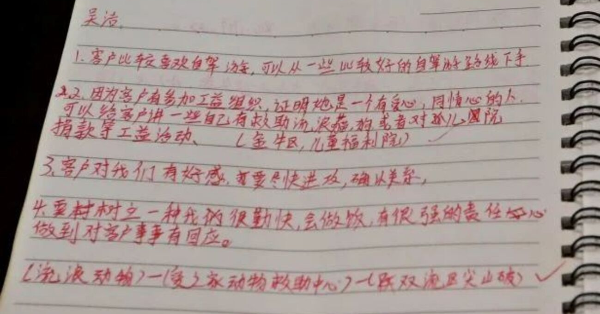 吴洁
1.客户比较喜欢自驾游,可以从一些比较好的自驾游路线下手
2.因为客户有参加工益组织,证明她是一个有爱心,同情心的人.
可以给客户讲一些自己有救助流浪猫,狗或者对孤儿院
捐款等工益活动、(金牛区,儿童福利院)
3.客户对我们有好感,需要尽快进攻,确认关系,
4.要树立一种我们很勤快,会做饭,有很强的责任心
做到对客户事事有回应。
(流浪动物)一(爱之家动物救助中心)一(跃双流区尖山破)